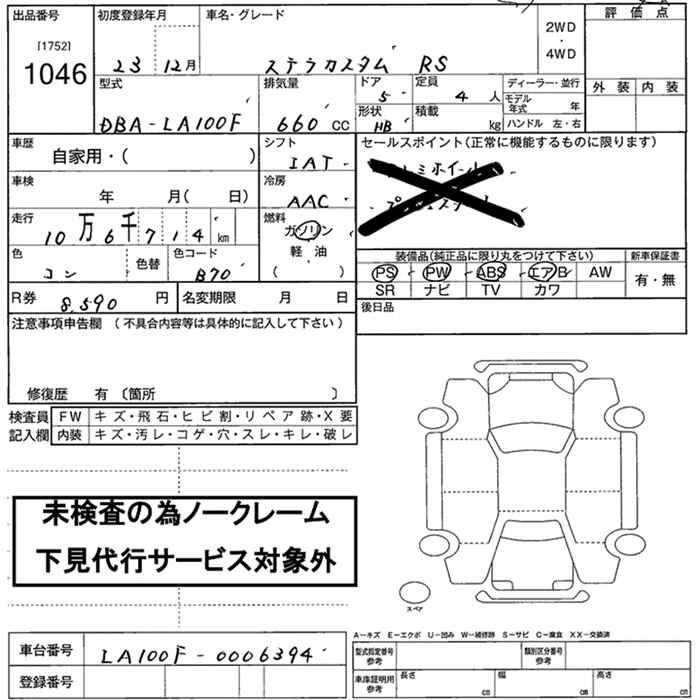 出品番号 初度登録年月 車名・グレード 評価点
[1752]
1046
23 12月 ステラカスタム RS
2WD
・
4WD
外装 内装
型式 排気量 ドア 定員 ディーラー・並行
DBA-LA100F 660 CC 5 4 人
形状 積載 モデル年式 年
HB kg ハンドル 左・右
車歴 シフト セールスポイント(正常に機能するものに限ります)
自家用・( ) IAT
車検 冷房
年 月( 日) AAC
走行 燃料
10万6千714km ガソリン
軽・油
( )
色 色替 色コード
コン B70
装備品(純正品に限り丸をつけて下さい) 新車保証書
PS PW ABS エアB AW
SR ナビ TV カワ
有・無
R券 8,590 円 名変期限 月 日
後日品
注意事項申告欄 (不具合内容等は具体的に記入して下さい)
修復歴 有 〔箇所 〕
検査員 FW キズ・飛石・ヒビ割・リペア跡・X要
記入欄 内装 キズ・汚レ・コゲ・穴・スレ・キレ・破レ
未検査の為ノークレーム
下見代行サービス対象外
スペア
A−キズ E−エクボ U−凹み W−補修跡 S−サビ C−腐食 XX−交換済
車台番号 LA100F-0006394
登録番号
型式指定番号 参考 類別区分番号 参考
車庫証明用 参考 長さ cm 幅 cm 高さ cm